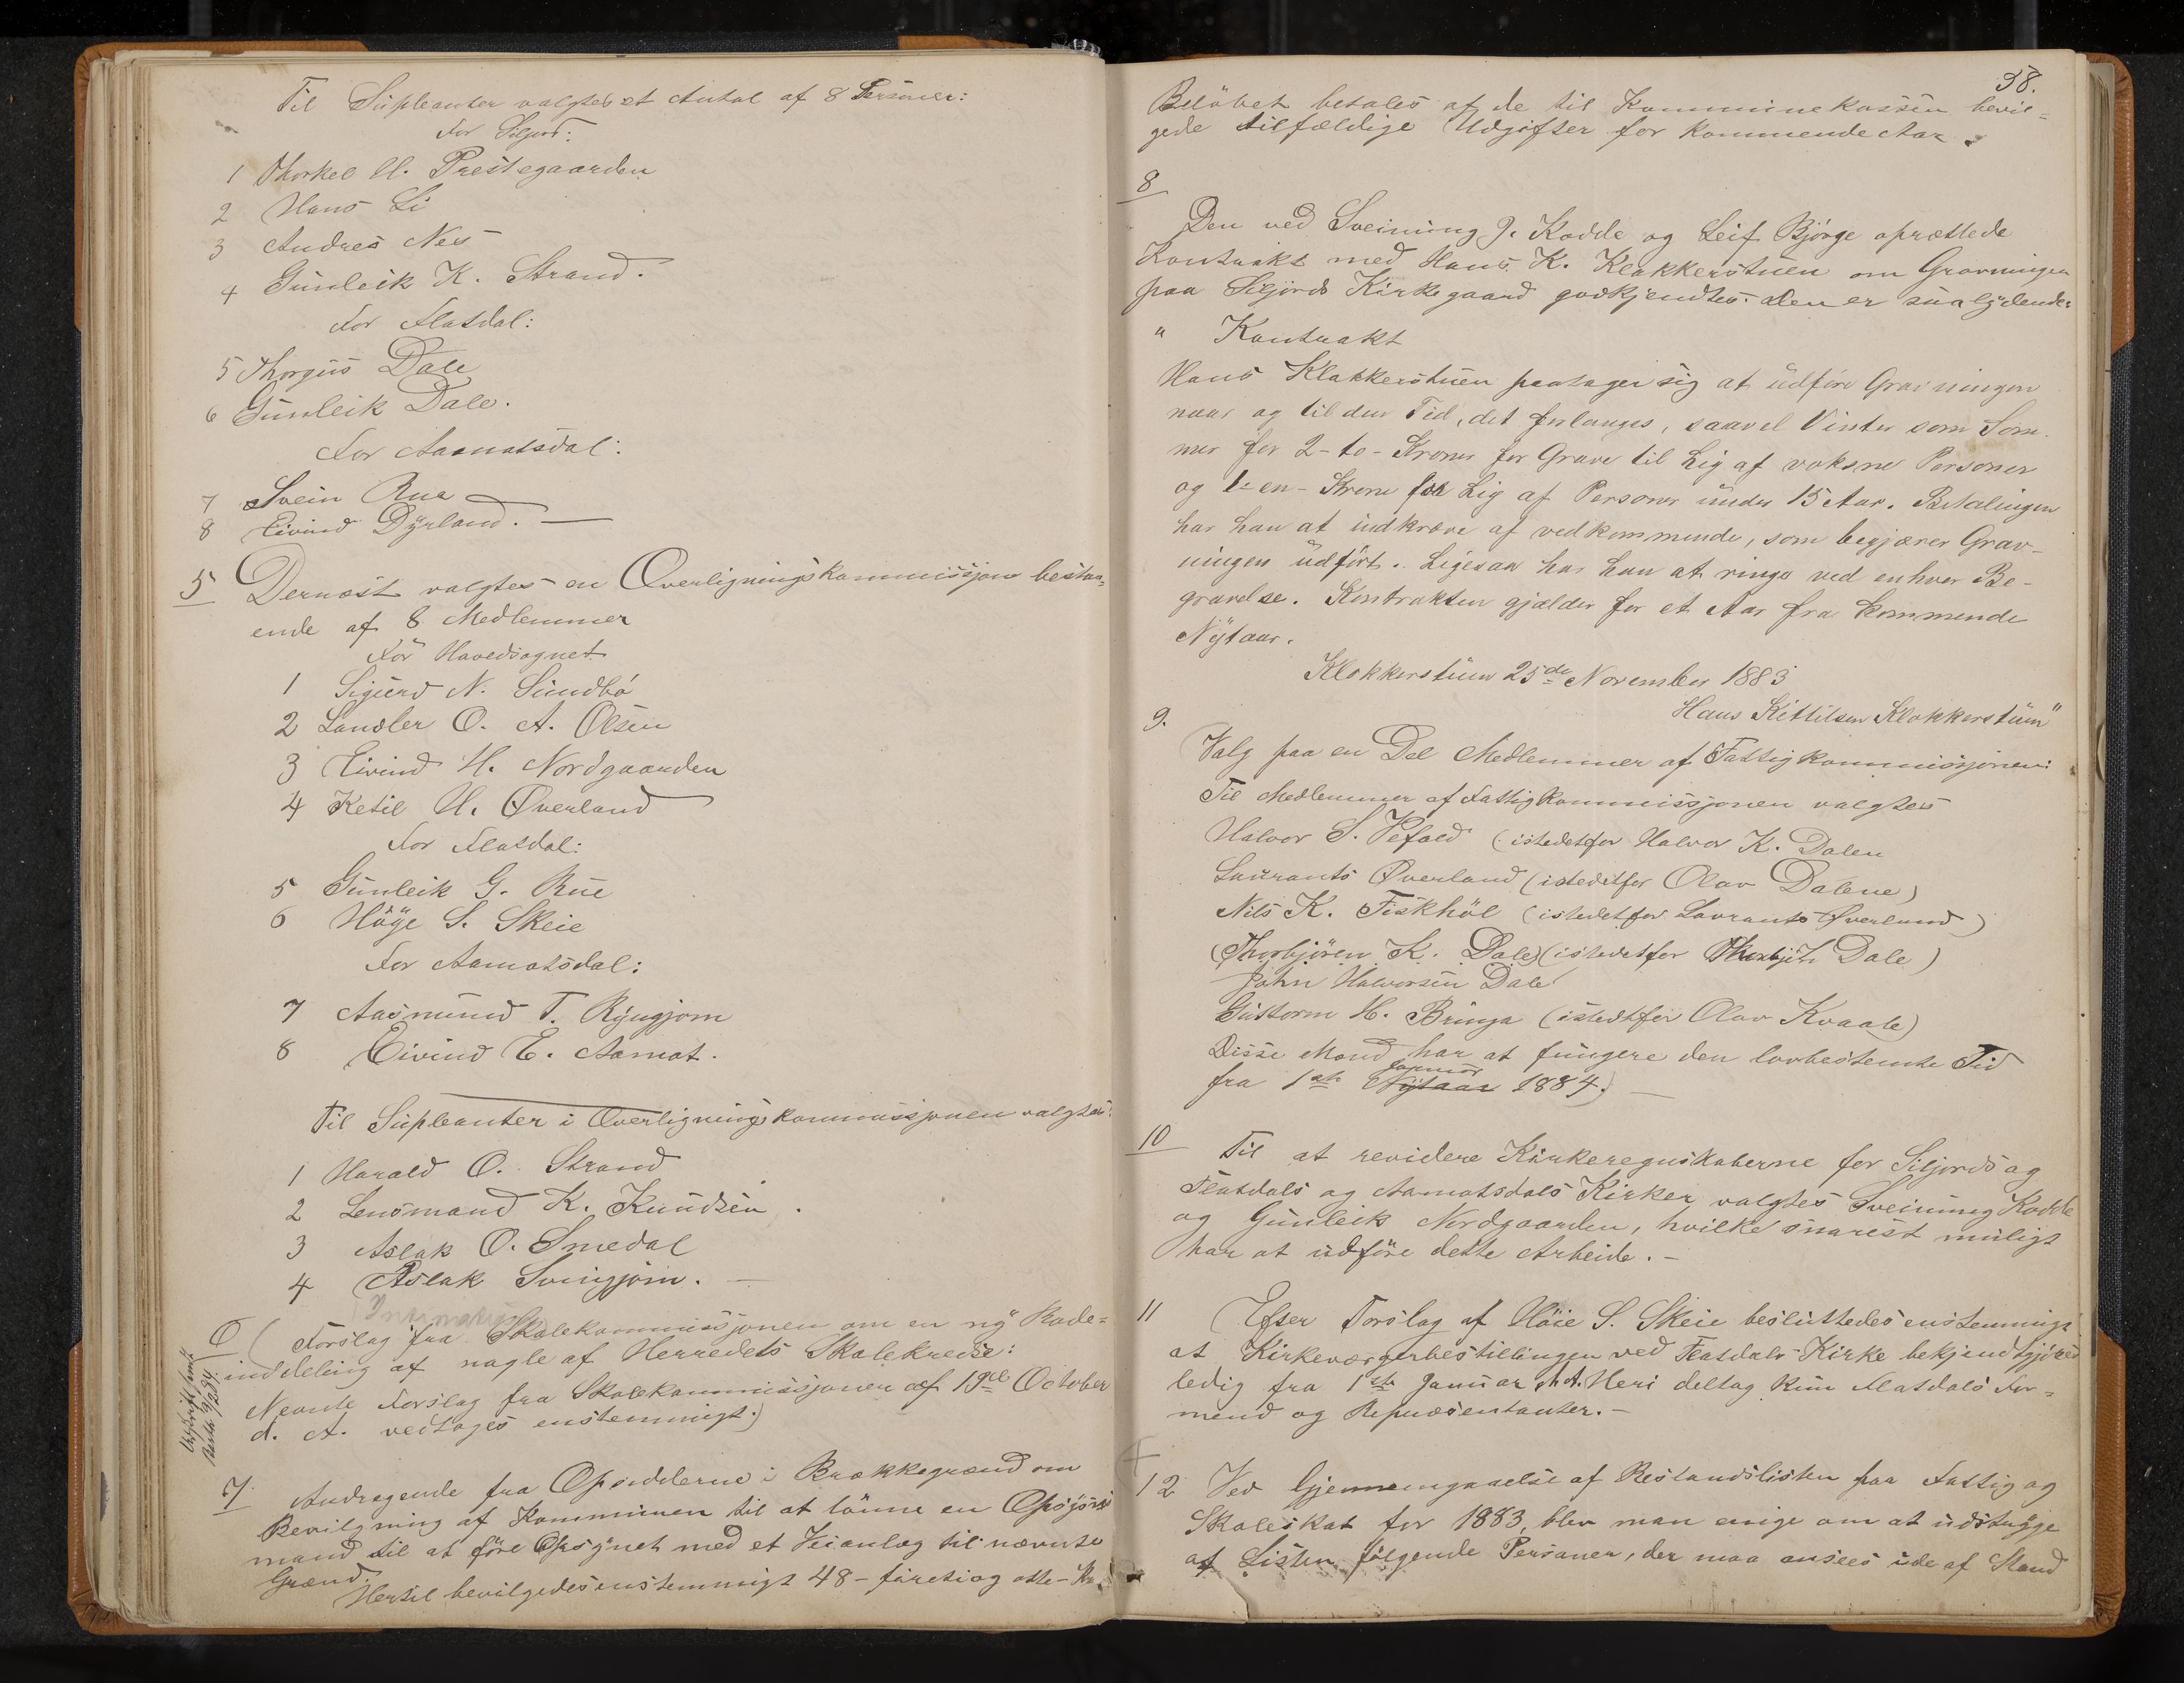 Til Supleanter valgtes et Antal af 8 Personer:
For Siljord:
1 Thorkel H. Prestegaarden
2 Hans Li
3 Andres Nes
4 Gunleik K. Strand.
For Flatdal:
5 Thorgus Dale
6 Gunleik Dale.
For Aamotsdal:
7 Svein Rue
8 Eivind Dyrland. —
5 Dernæst valgtes en Overligningskommissjon bestaa-
ende af 8 Medlemmer
For Hovedsognet
1 Sigurd N. Sundbö
2 Landler O. A. Olsen
3 Eivind H. Nordgaarden
4 Ketil H. Øverland
For Flatdal:
5 Gunleik G. Rue
6 Höye S. Skeie
For Aamotsdal:
7 Aasmund T. Ryngjom
8 Eivind E. Aamot.
Til Supleanter i Overligningskommissjonen valgtes:
1 Harald O. Strand
2 Lensmand K. Knudsen.
3 Aslak O. Smedal
4 Aslak Svingjom. —
6 (Forslag fra Skolekommissjonen om en ny Rode-
inddeling af nogle af Herredets Skolekredse:
Nevnte Forslag fra Skolekommissjonen af 19de October
d. A. vedtages enstemmigt.)
Udskrift sendt
7. Andragende fra Opsidderne i Brækkegrænd om
Bevilgning af Kommunen til at lönne en Opsjöns
mand til at före Opsynet med et Veianlæg til nævnte
Grænd.
Hertil bevilgedes enstemmigt 48 - företiog otte - Kr.
38.
Belöbet betales af de til Kommunekassen bevil-
gede tilfældige Udgifter for kommende Aar.
8
Den ved Sveinung J. Kodde og Leif Bjórge oprættede
Kontrakt med Hans K. Klokkerstuen om Gravningen
paa Siljords Kirkegaard godkjendtes. Den er saalydende:
" Kontrakt
Hans Klokkerstuen paatager sig at udföre Gravningen
naar og til den Tid, det forlanges, saavel Vinter som Som
mer for 2 - to - Kroner for Grave til Lig af voksne Personer
og 1 - en - Krone for Lig af Personer under 15 Aar. Betalingen
har han at indkræve af vedkommende, som begjærer Grav-
ningen udfört. Ligesaa har han at ringe ved enhver Be-
gravelse. Kontrakten gjælder for et Aar fra kommende
Nytaar.
Klokkerstuen 25de November 1883
Hans Kittilsen Klokkerstuen"
9.
Valg paa en Del Medlemmer af Fattigkommissjonen:
Til Medlemmer af Fattigkommissjonen valgtes
Halvor S. Vefald (istedetfor Halvor K. Dalen
Laurants Øverland (istedetfor Olav Dalene)
Nils K. Fiskhöl (istedetfor Lavrants Øverland)
(Thorbjören K. Dale) (istedetfor Thorbjörn Dale)
John Halvorsen Dale
Guttorm H. Bringa (istedtfor Olav Kvaale)
Disse Mænd har at fungere den lovbestemte Tid
fra 1ste Nytaar Januar 1884.) —
10
Til at revidere Kirkeregnskaberne for Siljords og
Flatdals og Aamotsdals Kirker valgtes Sveinung Kodde
og Gunleik Nordgaarden, hvilke snarest muligt
har at udföre dette Arbeide. —
11 Efter Forslag af Höie S. Skeie besluttedes enstemmigt
at Kirkeværgerbestillingen ved Flatdals Kirke bekjendtgjöres
ledig fra 1ste Januar n. A. Heri deltog kun Flatdals For-
mend og Repræsentanter. —
12 Ved Gjennemgaaelse af Restandslisten paa Fattig og
Skoleskat for 1883, blev man enige om at udstryge
af Listen fölgende Personer, der maa ansees ude af Stand